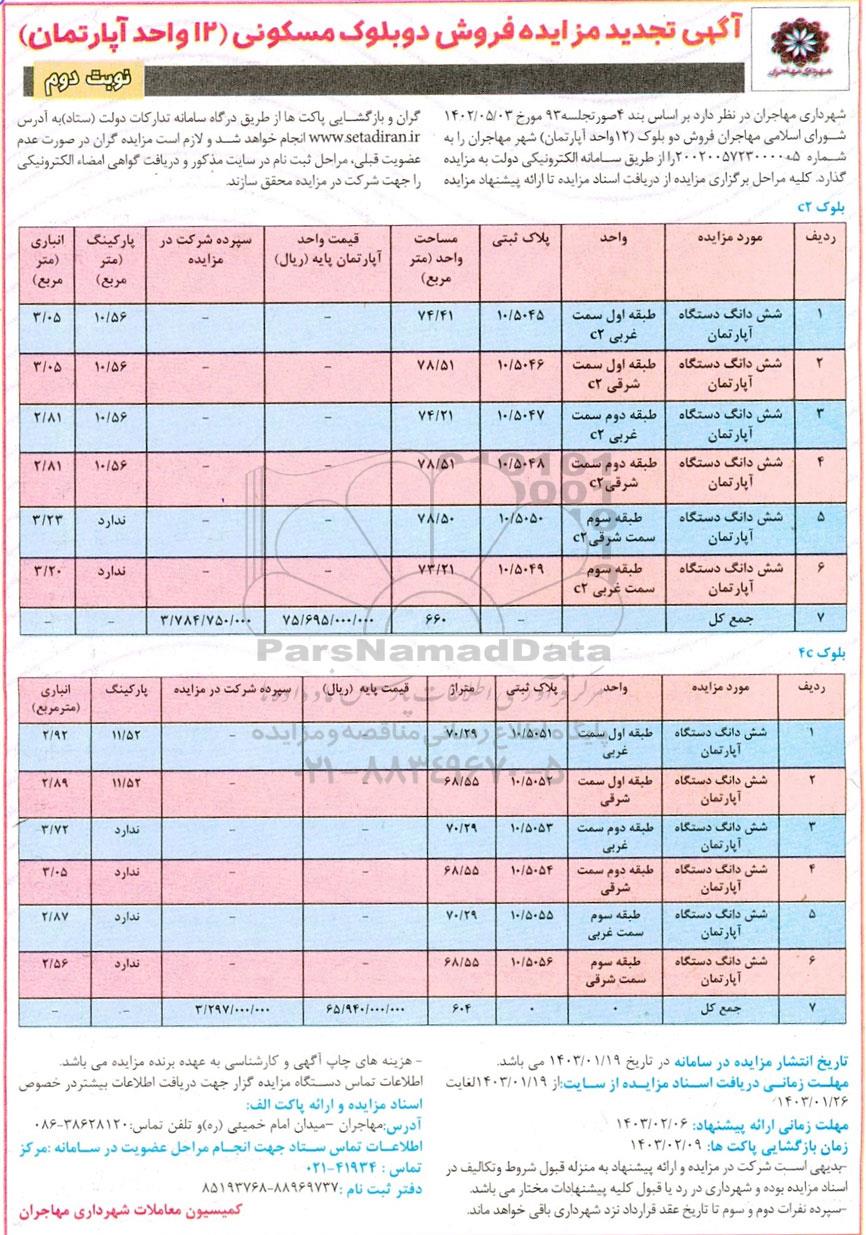 آگهی تجدید مزایده فروش دو بلوک مسکونی (۱۲ واحد آپارتمان)
شهرداری مهاجران
نوبت دوم
شهرداری مهاجران در نظر دارد بر اساس بند ۴صورتجلسه۹۳ مورخ ۱۴۰۲/۰۵/۰۳
شورای اسلامی مهاجران فروش دو بلوک (۱۲واحد آپارتمان) شهر مهاجران را به
شماره ۲۰۰۲۰۰۵۷۲۳۰۰۰۰۰۵را از طریق سامانه الکترونیکی دولت به مزایده
گذارد. کلیه مراحل برگزاری مزایده از دریافت اسناد مزایده تا ارائه پیشنهاد مزایده
گران و بازگشایی پاکت ها از طریق درگاه سامانه تدارکات دولت (ستاد)به آدرس
www.setadiran.ir انجام خواهد شد و لازم است مزایده گران در صورت عدم
عضویت قبلی، مراحل ثبت نام در سایت مذکور و دریافت گواهی امضاء الکترونیکی
را جهت شرکت در مزایده محقق سازند.
بلوک c۲
ردیف مورد مزایده واحد پلاک ثبتی مساحت واحد (متر مربع) قیمت واحد آپارتمان پایه (ریال) سپرده شرکت در مزایده پارکینگ (متر مربع) انباری (متر مربع)
۱ شش دانگ دستگاه آپارتمان طبقه اول سمت غربی c۲ ۱۰/۵۰۴۵ ۷۴/۴۱ - - ۱۰/۵۶ ۳/۰۵
۲ شش دانگ دستگاه آپارتمان طبقه اول سمت شرقی c۲ ۱۰/۵۰۴۶ ۷۸/۵۱ - - ۱۰/۵۶ ۳/۰۵
۳ شش دانگ دستگاه آپارتمان طبقه دوم سمت غربی c۲ ۱۰/۵۰۴۷ ۷۴/۲۱ - - ۱۰/۵۶ ۲/۸۱
۴ شش دانگ دستگاه آپارتمان طبقه دوم سمت شرقی c۲ ۱۰/۵۰۴۸ ۷۸/۵۱ - - ۱۰/۵۶ ۲/۸۱
۵ شش دانگ دستگاه آپارتمان طبقه سوم سمت شرقی c۲ ۱۰/۵۰۵۰ ۷۸/۵۰ - - ندارد ۳/۲۳
۶ شش دانگ دستگاه آپارتمان طبقه سوم سمت غربی c۲ ۱۰/۵۰۴۹ ۷۳/۲۱ - - ندارد ۳/۲۰
۷ جمع کل - ۶۶۰ ۷۵/۶۹۵/۰۰۰/۰۰۰ ۳/۷۸۴/۷۵۰/۰۰۰ - -
ParsNamadData
پایگاه اطلاع رسانی مناقصه و مزایده
۰۲۱-۸۸۳۴۹۶۷۰-۵
بلوک ۴c
ردیف مورد مزایده واحد پلاک ثبتی متراژ قیمت پایه (ریال) سپرده شرکت در مزایده پارکینگ انباری (مترمربع)
۱ شش دانگ دستگاه آپارتمان طبقه اول سمت غربی ۱۰/۵۰۵۱ ۷۰/۲۹ - - ۱۱/۵۲ ۲/۹۲
۲ شش دانگ دستگاه آپارتمان طبقه اول سمت شرقی ۱۰/۵۰۵۲ ۶۸/۵۵ - - ۱۱/۵۲ ۲/۸۹
۳ شش دانگ دستگاه آپارتمان طبقه دوم سمت غربی ۱۰/۵۰۵۳ ۷۰/۲۹ - - ندارد ۳/۷۲
۴ شش دانگ دستگاه آپارتمان طبقه دوم سمت شرقی ۱۰/۵۰۵۴ ۶۸/۵۵ - - ندارد ۳/۰۵
۵ شش دانگ دستگاه آپارتمان طبقه سوم سمت غربی ۱۰/۵۰۵۵ ۷۰/۲۹ - - ندارد ۲/۸۷
۶ شش دانگ دستگاه آپارتمان طبقه سوم سمت شرقی ۱۰/۵۰۵۶ ۶۸/۵۵ - - ندارد ۲/۵۶
۷ جمع کل ۰ ۰ ۶۰۴ ۶۵/۹۴۰/۰۰۰/۰۰۰ ۳/۲۹۷/۰۰۰/۰۰۰ - -
تاریخ انتشار مزایده در سامانه در تاریخ ۱۴۰۳/۰۱/۱۹ می باشد.
مهلت زمانی دریافت اسناد مزایده از سایت:از ۱۴۰۳/۰۱/۱۹لغایت
۱۴۰۳/۰۱/۲۶
مهلت زمانی ارائه پیشنهاد: ۱۴۰۳/۰۲/۰۶
زمان بازگشایی پاکت ها: ۱۴۰۳/۰۲/۰۹
-بدیهی است شرکت در مزایده و ارائه پیشنهاد به منزله قبول شروط وتکالیف در
اسناد مزایده بوده و شهرداری در رد یا قبول کلیه پیشنهادات مختار می باشد.
-سپرده نفرات دوم و سوم تا تاریخ عقد قرارداد نزد شهرداری باقی خواهد ماند.
- هزینه های چاپ آگهی و کارشناسی به عهده برنده مزایده می باشد.
اطلاعات تماس دستگاه مزایده گزار جهت دریافت اطلاعات بیشتردر خصوص
اسناد مزایده و ارائه پاکت الف:
آدرس:مهاجران -میدان امام خمینی (ره)و تلفن تماس:۳۸۶۲۸۱۲۰-۰۸۶
اطلاعات تماس ستاد جهت انجام مراحل عضویت در سامانه :مرکز
تماس : ۴۱۹۳۴-۰۲۱
دفتر ثبت نام :۸۸۹۶۹۷۳۷-۸۵۱۹۳۷۶۸
کمیسیون معاملات شهرداری مهاجران